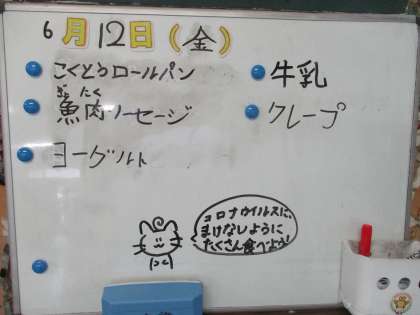 6月12日(金)
こくとうロールパン
牛乳
ぎょ にく
魚肉ソーセージ
クレープ
ヨーグルト
コロナウイルスに、
まけなしように
たくさん食べよう!